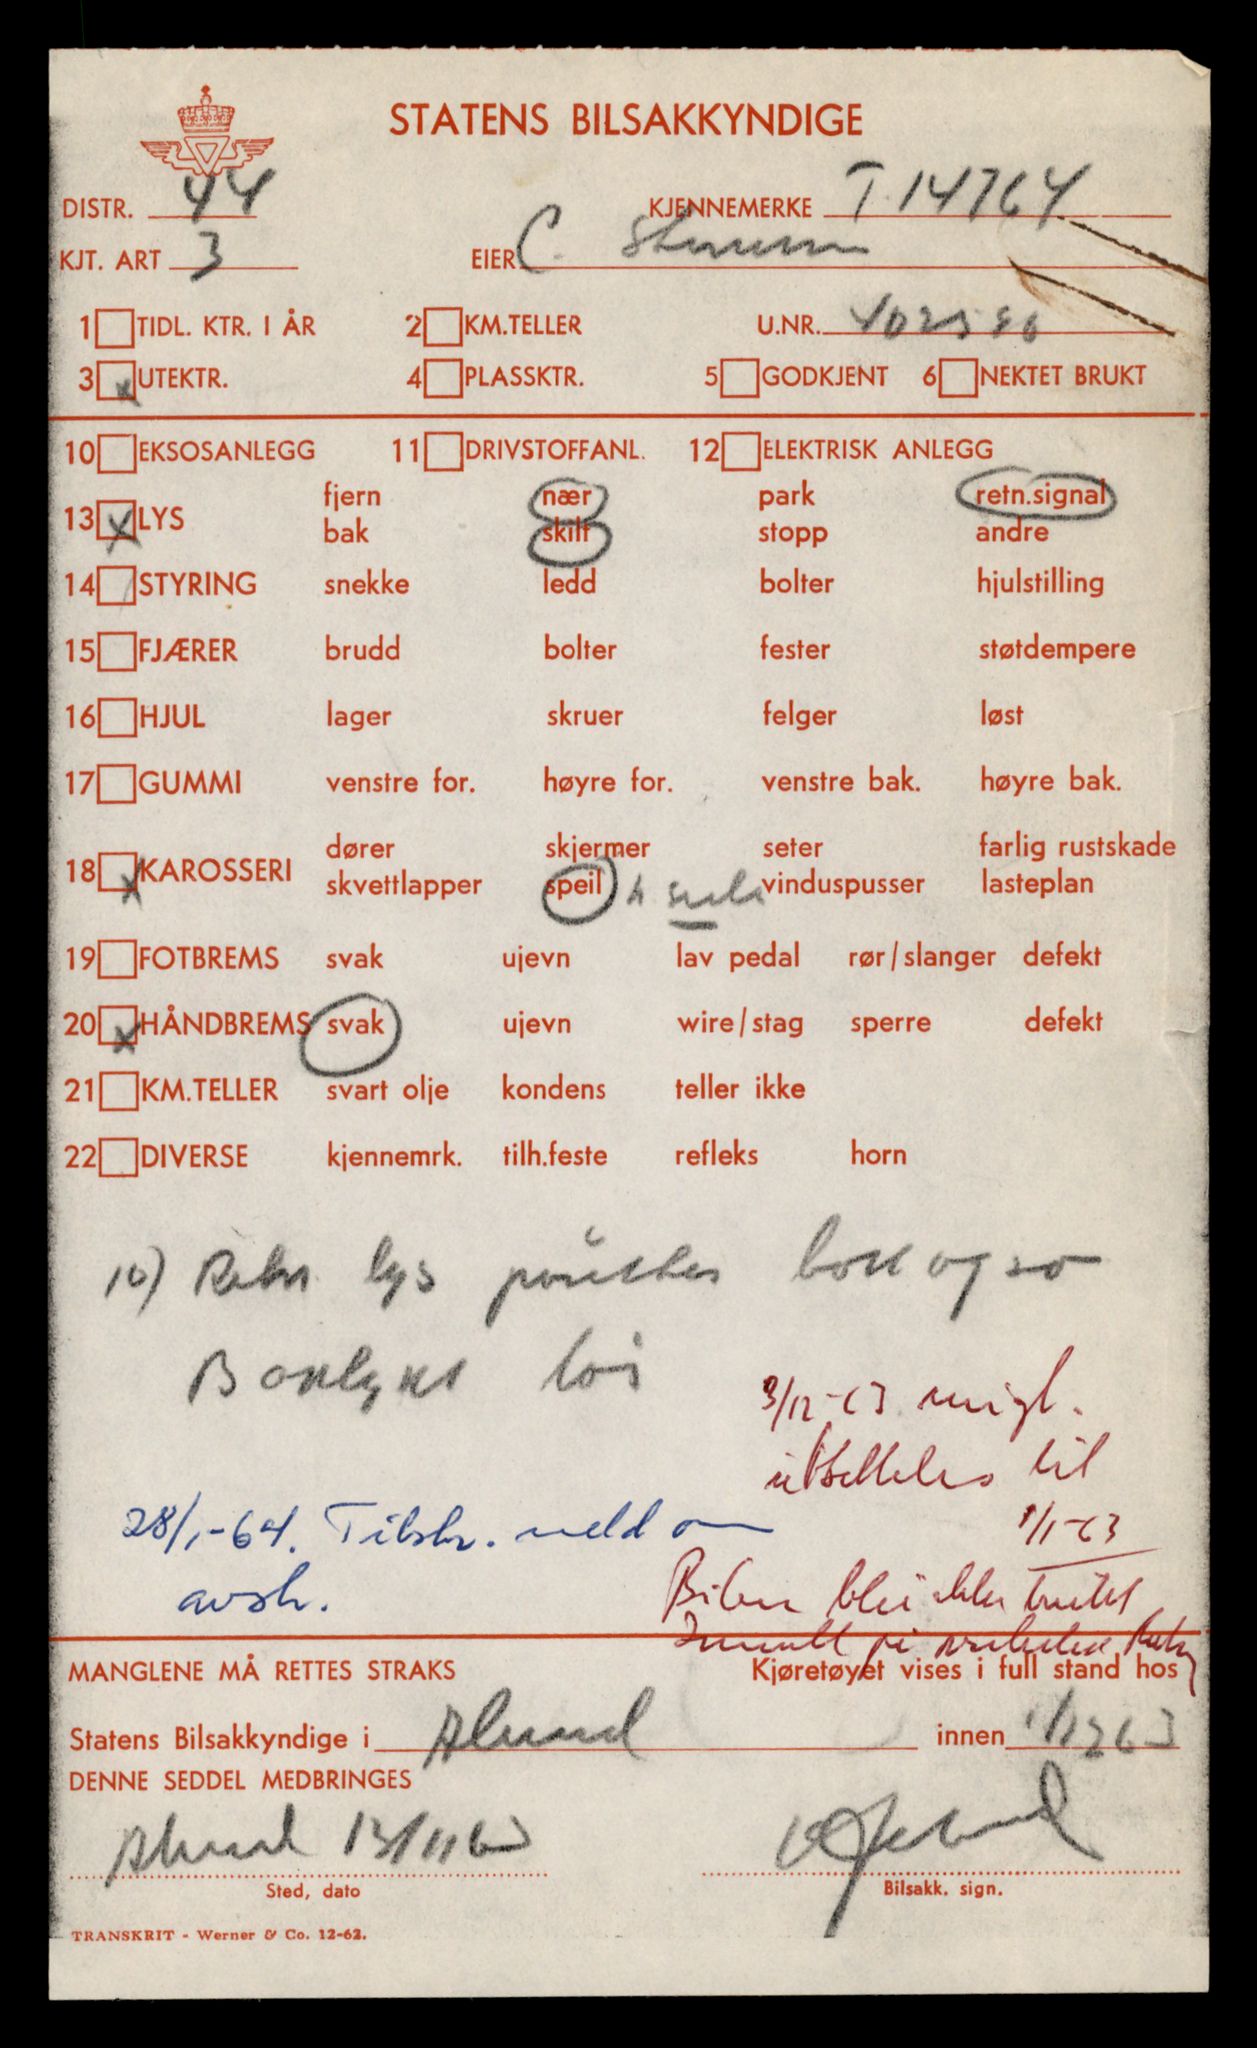 STATENS BILSAKKYNDIGE
DISTR. 44 KJENNEMERKE T-14764
KJT. ART 3 EIER C.
1 TIDL. KTR. I ÅR 2 KM.TELLER U.NR. 402590
3 x UTEKTR. 4 PLASSKTR. 5 GODKJENT 6 NEKTET BRUKT
10 EKSOSANLEGG 11 DRIVSTOFFANL. 12 ELEKTRISK ANLEGG
fjern nær park retn.signal
13 x LYS
bak skilt stopp andre
14 STYRING snekke ledd bolter hjulstilling
15 FJÆRER brudd bolter fester støtdempere
16 HJUL lager skruer felger løst
17 GUMMI venstre for. høyre for. venstre bak. høyre bak.
dører skjermer seter farlig rustskade
18 x KAROSSERI
skvettlapper speil h vinduspusser lasteplan
19 FOTBREMS svak ujevn lav pedal rør/slanger defekt
20 x HÅNDBREMS svak ujevn wire/stag sperre defekt
21 KM.TELLER svart olje kondens teller ikke
22 DIVERSE kjennemrk. tilh.feste refleks horn
10) lys
Baklykt løs
3/12-63
utsettelse til
1/1-63
28/1-64. Tilskr. meld om
avsk.
Bilen blir ikke brukt
MANGLENE MÅ RETTES STRAKS Kjøretøyet vises i full stand hos
Statens Bilsakkyndige i Ålesund innen 1/12 63
DENNE SEDDEL MEDBRINGES
Ålesund 13/11 63
Sted, dato Bilsakk. sign.
TRANSKRIT - Werner & Co. 12-62.